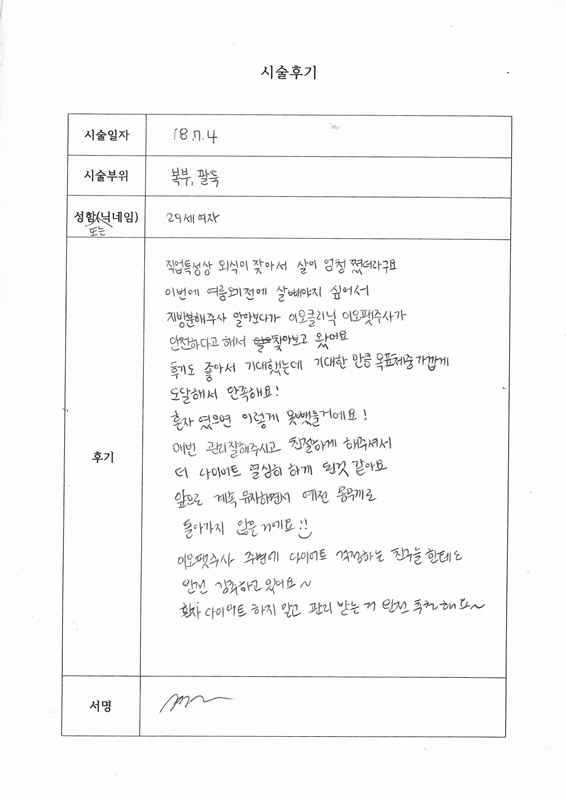 시술후기
시술일자 18.7.4
시술부위 복부, 팔뚝
성함(닉네임) 29세 여자
또는
후기
직업특성상 외식이 잦아서 살이 엄청 쪘더라구요
이번에 여름오기전에 살빼야지 싶어서
지방분해주사 알아보다가 이오클리닉 이오팻주사가
안전하다고 해서 찾아보고 왔어요
후기도 좋아서 기대했는데 기대한 만큼 목표체중 가깝게
도달해서 만족해요!
혼자 였으면 이렇게 못뺐을거에요!
매번 관리잘해주시고 친절하게 해주셔서
더 다이어트 열심히 하게 된것 같아요
앞으로 계속 유지하면서 예전 몸무게로
돌아가지 않을거에요!!
이오팻주사 주변에 다이어트 걱정하는 친구들한테도
완전 강추하고 있어요~
혼자 다이어트 하지 말고 관리 받는 거 완전 추천 해요~
서명